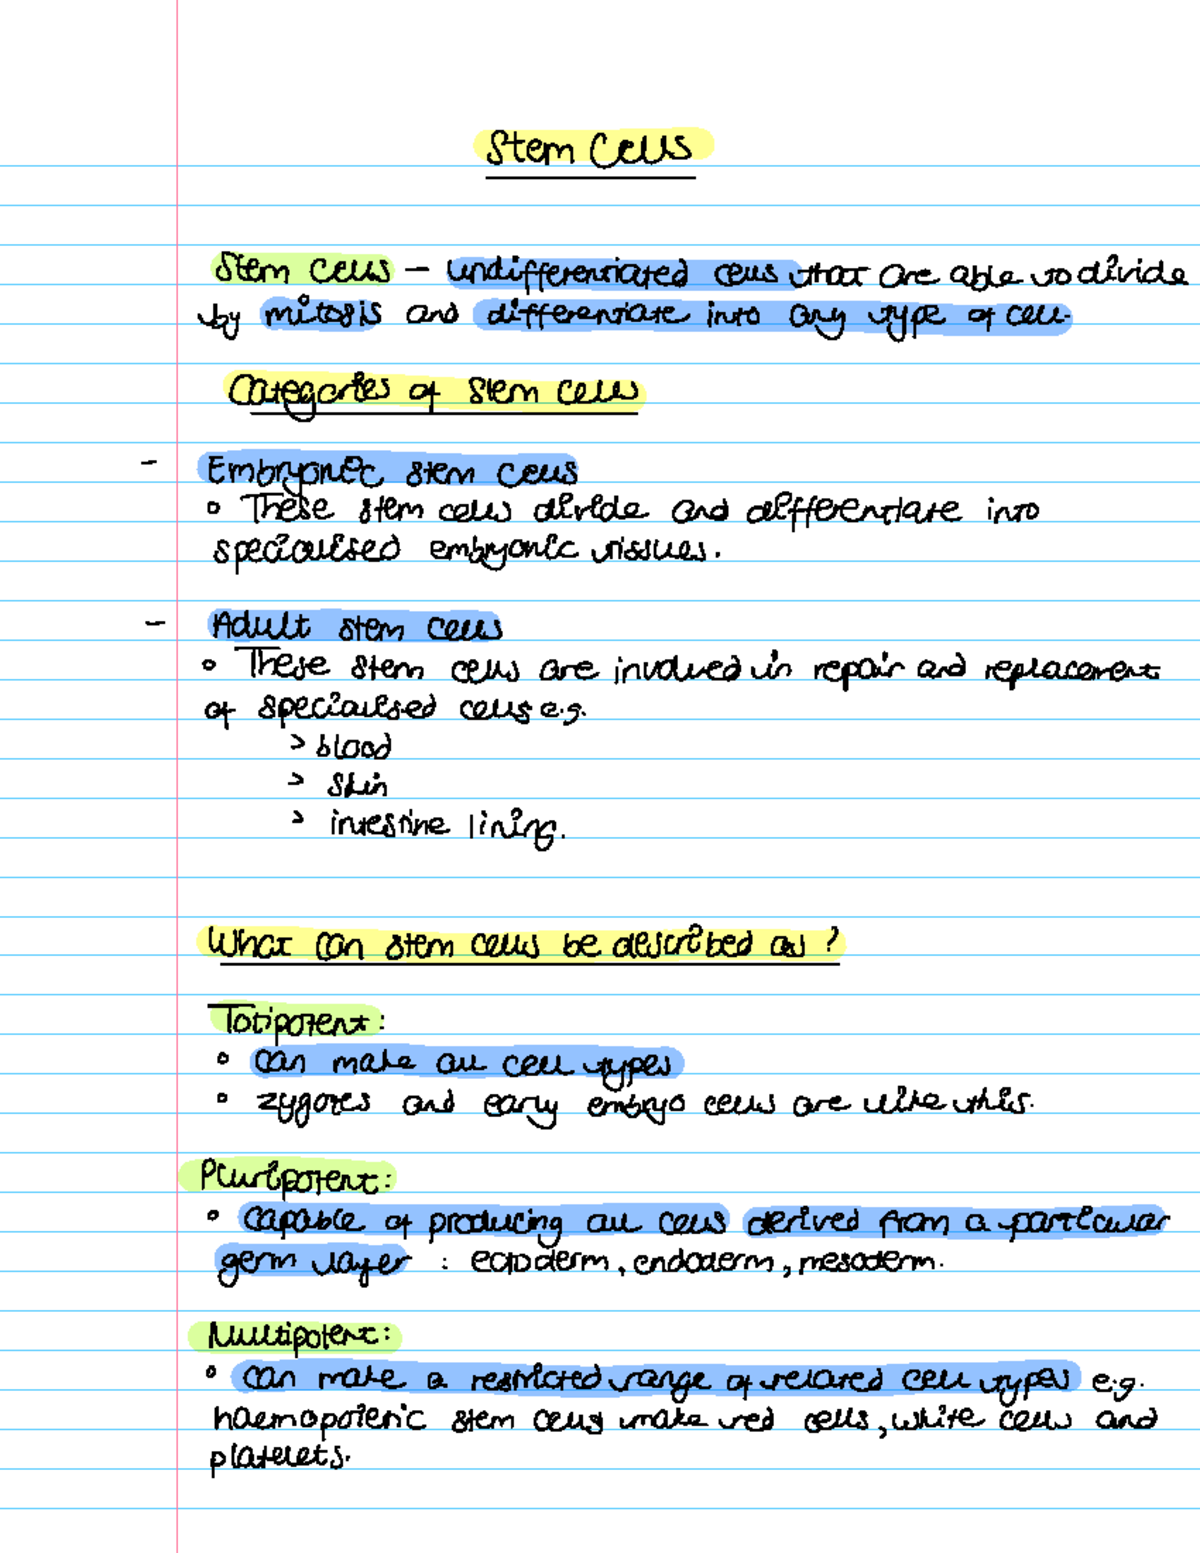 Stem Cells
Stem cells – undifferentiated cells that are able to divide
by mitosis and differentiate into any type of cell.
Categories of stem cells
- Embryonic stem cells
° These stem cells divide and differentiate into
specialised embryonic tissues.
- Adult stem cells
° These stem cells are involved in repair and replacement
of specialised cells e.g.
> blood
> skin
> intestine lining.
What can stem cells be described as?
Totipotent:
° can make all cell types
° zygotes and early embryo cells are like this.
Pluripotent:
° capable of producing all cells derived from a particular
germ layer : ectoderm, endoderm, mesoderm.
Multipotent:
° can make a restricted range of related cell types e.g.
haemopoteric stem cells make red cells, white cells and
platelets.